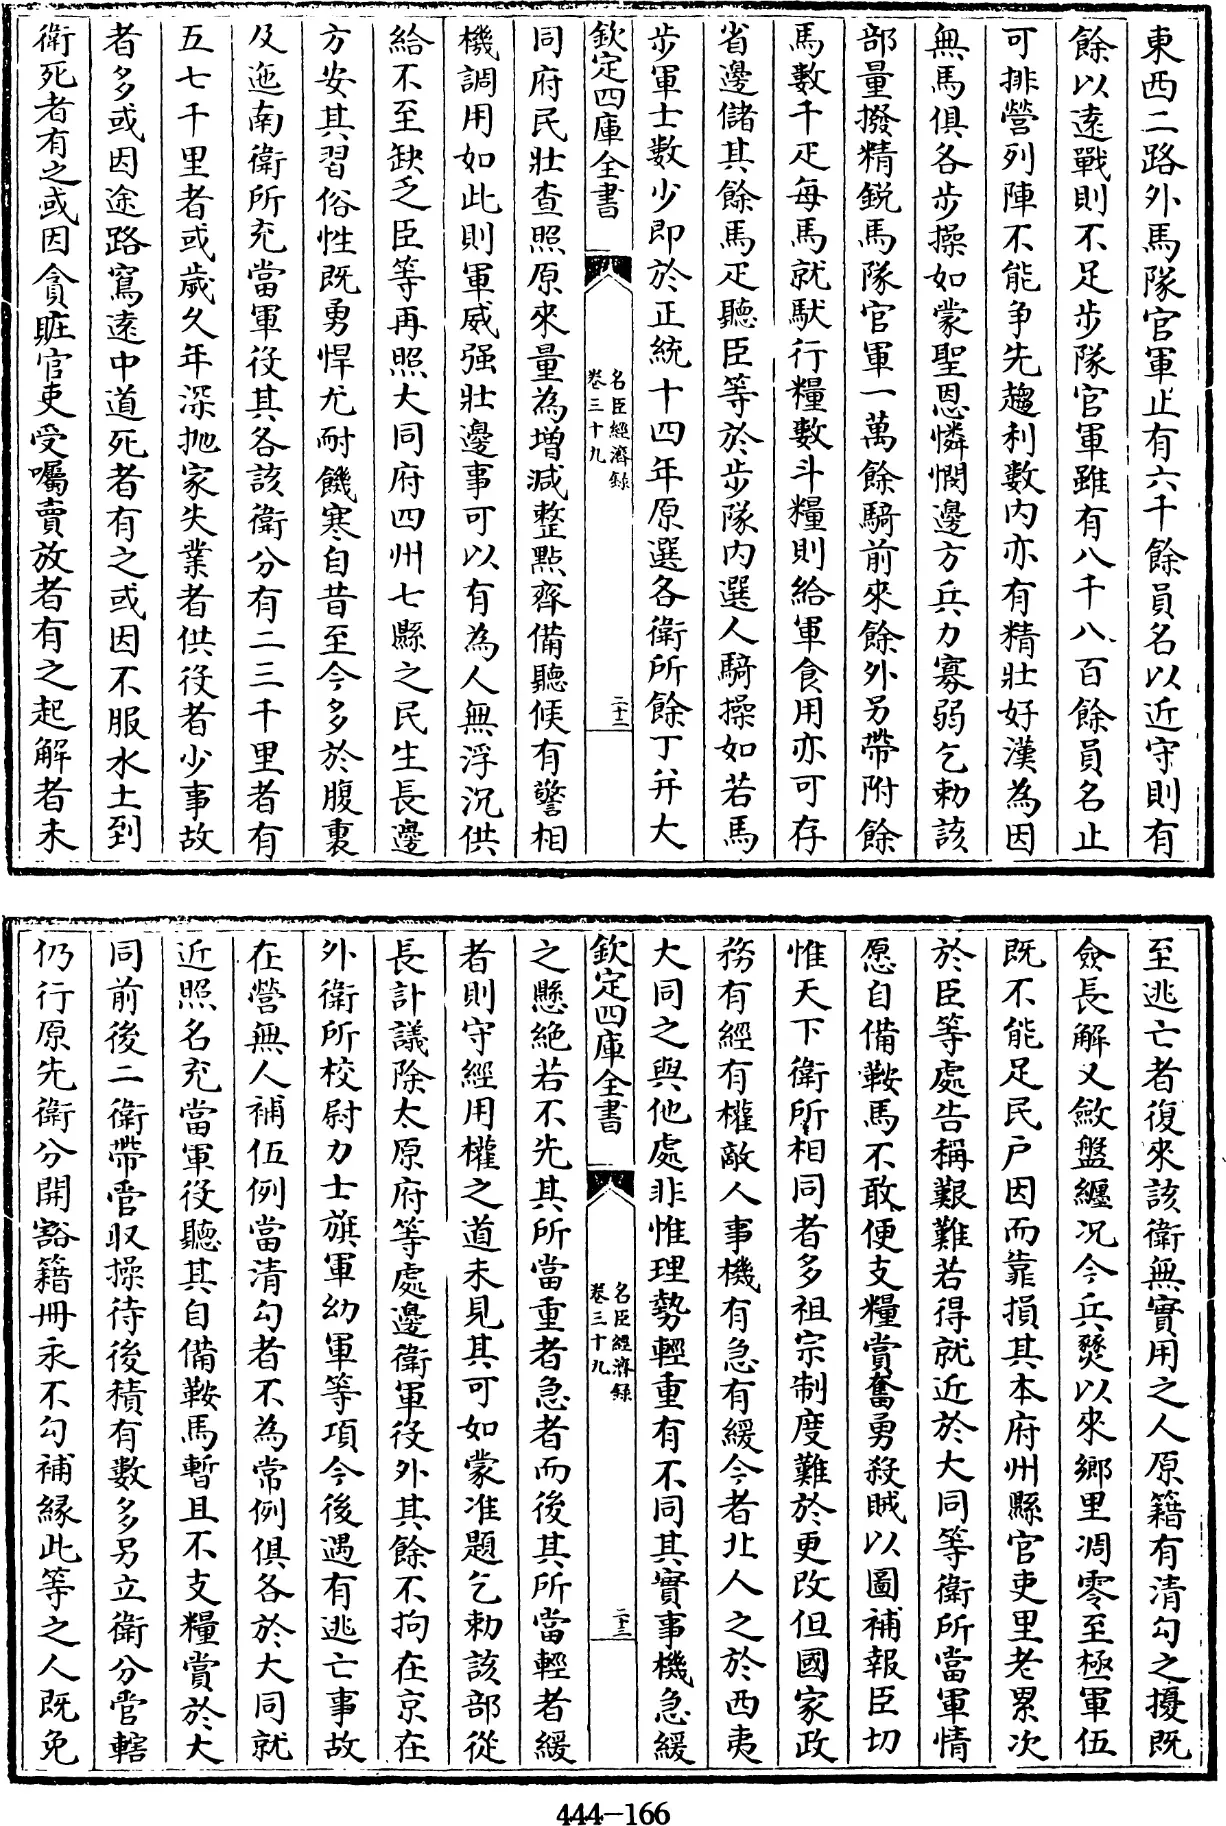 東西二路外馬隊官軍止有六千餘員名以近守則有
餘以遠戰則不足步隊官軍雖有八千八百餘員名止
可排營列陣不能争先趨利數内亦有精壯好漢為因
無馬俱各步操如蒙聖恩憐憫邊方兵力寡弱乞勅該
部量撥精鋭馬隊官軍一萬餘騎前來餘外另帶附餘
馬數千疋每馬就馱行糧數斗糧則給軍食用亦可存
省邊儲其餘馬疋聽臣等於步隊内選人騎操如若馬
步軍士數少即於正統十四年原選各衛所餘丁并大
欽定四庫全書
名臣經濟錄
卷三十九
二十二
同府民壯查照原來量為增減整點齊備聽候有警相
機調用如此則軍威强壯邊事可以有為人無浮沉供
給不至缺乏臣等再照大同府四州七縣之民生長邊
方安其習俗性既勇悍尤耐饑寒自昔至今多於腹裏
及迤南衛所充當軍役其各該衛分有二三千里者有
五七千里者或歲久年深抛家失業者供役者少事故
者多或因途路寫遠中道死者有之或因不服水土到
衛死者有之或因貪賍官吏受囑賣放者有之起解者未
至逃亡者復來該衛無實用之人原籍有清勾之擾既
僉長解又斂盤纏况今兵燹以來鄉里凋零至極軍伍
既不能足民户因而靠損其本府州縣官吏里老累次
於臣等處告稱艱難若得就近於大同等衛所當軍情
愿自備鞍馬不敢便支糧賞奮勇殺賊以圖補報臣切
惟天下衛所相同者多祖宗制度難於更改但國家政
務有經有權敵人事機有急有緩今者北人之於西夷
大同之與他處非惟理勢輕重有不同其實事機急緩
欽定四庫全書
名臣經濟錄
卷三十九
二十三
之懸絶若不先其所當重者急者而後其所當輕者緩
者則守經用權之道未見其可如蒙准題乞勅該部從
長計議除太原府等處邊衛軍役外其餘不拘在京在
外衛所校尉力士旗軍幼軍等項今後遇有逃亡事故
在營無人補伍例當清勾者不為常例俱各於大同就
近照名充當軍役聽其自備鞍馬暫且不支糧賞於大
同前後二衛帶管收操待後積有數多另立衛分管轄
仍行原先衛分開豁籍冊永不勾補緣此等之人既免
444-166